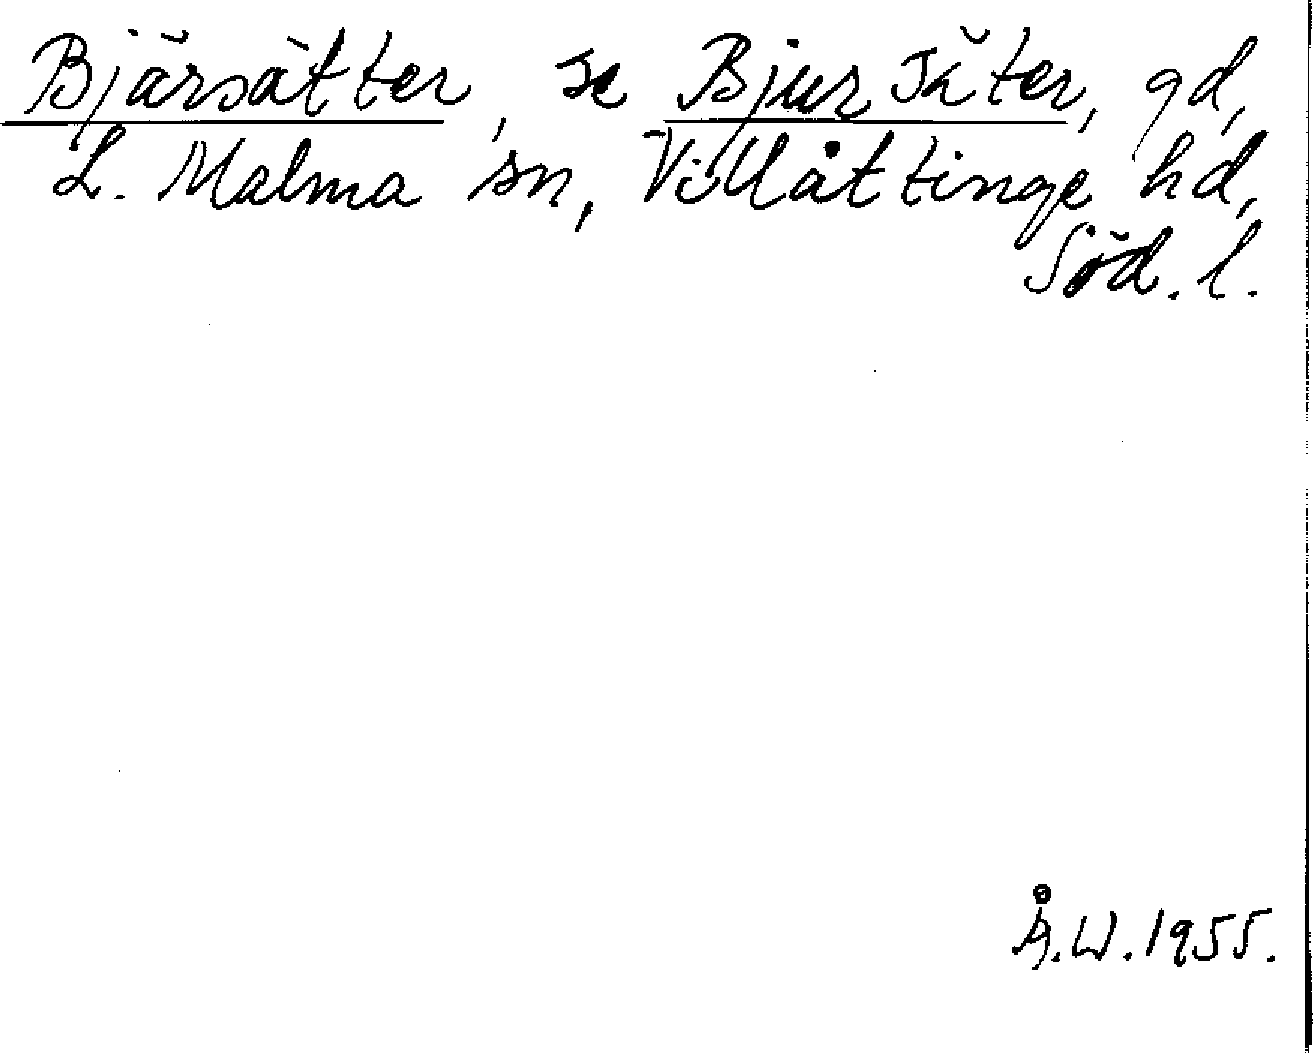 Bjärsätter, se Bjursäter, gd,
L. Malma sn, Villåttinge hd,
Söd. l.
Å.W. 1955.